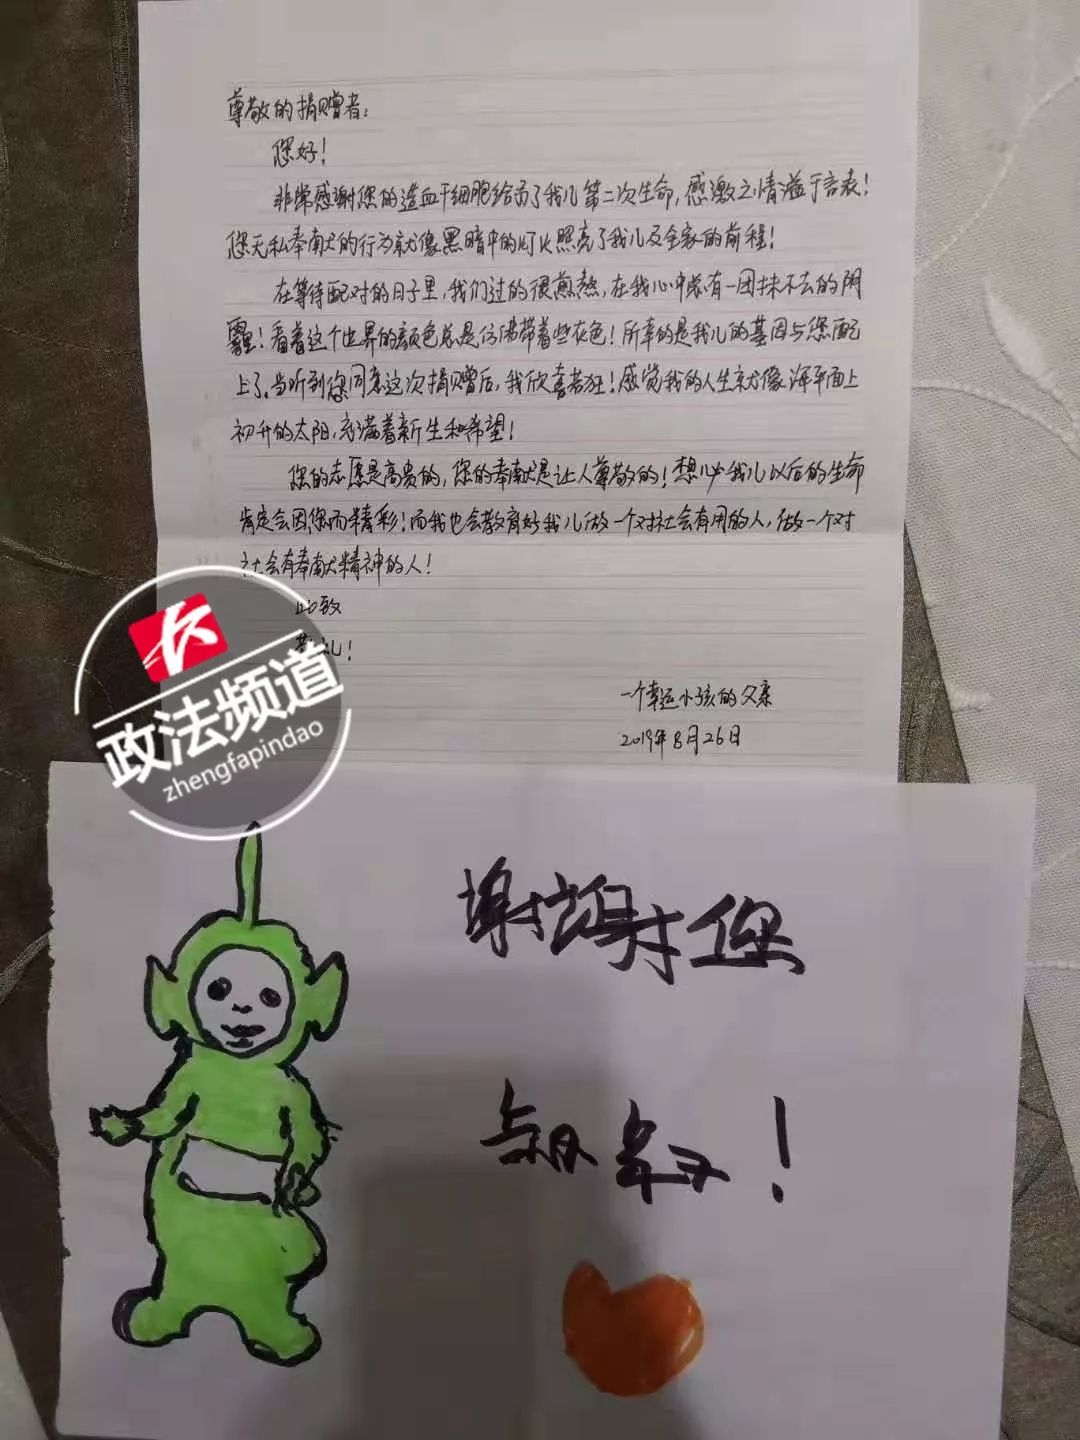 尊敬的捐赠者：
您好！
非常感谢您的造血干细胞给予了我儿第二次生命，感激之情溢于言表！
您无私奉献的行为就像黑暗中的灯火照亮了我儿及全家的前程！
在等待配对的日子里，我们过的很煎熬，在我心中总有一团抹不去的阴
霾！看着这个世界的颜色总是仿佛带着些灰色！所幸的是我儿的基因与您配
上了。当听到您同意这次捐赠后，我欣喜若狂！感觉我的人生就像海平面上
初升的太阳，充满着新生和希望！
您的志愿是高贵的，您的奉献是让人尊敬的！想必我儿以后的生命
肯定会因您而精彩！而我也会教育好我儿做一个对社会有用的人，做一个对
社会有奉献精神的人！
此致
敬礼！
一个幸运小孩的父亲
2019年8月26日
政法频道
zhengfapindao
谢谢您
叔叔！